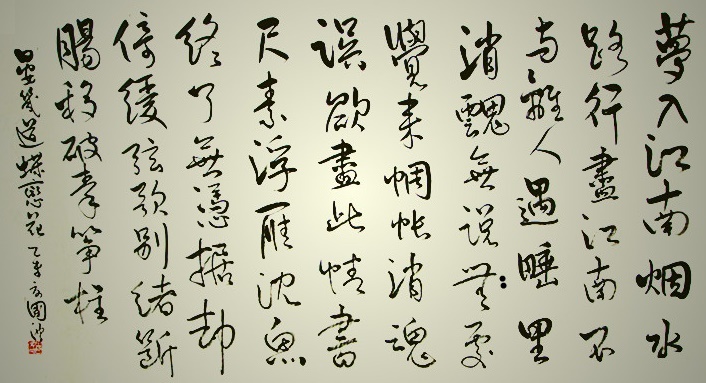 夢入江南烟水
路行盡江南不
与離人遇睡里
消魂無説無處
覺来惆悵消魂
誤欲盡此情書
尺素浮雁沈魚
終了無憑據却
倚緩弦歌别緒斷
腸移破秦筝柱
晏幾道蝶戀花 乙未